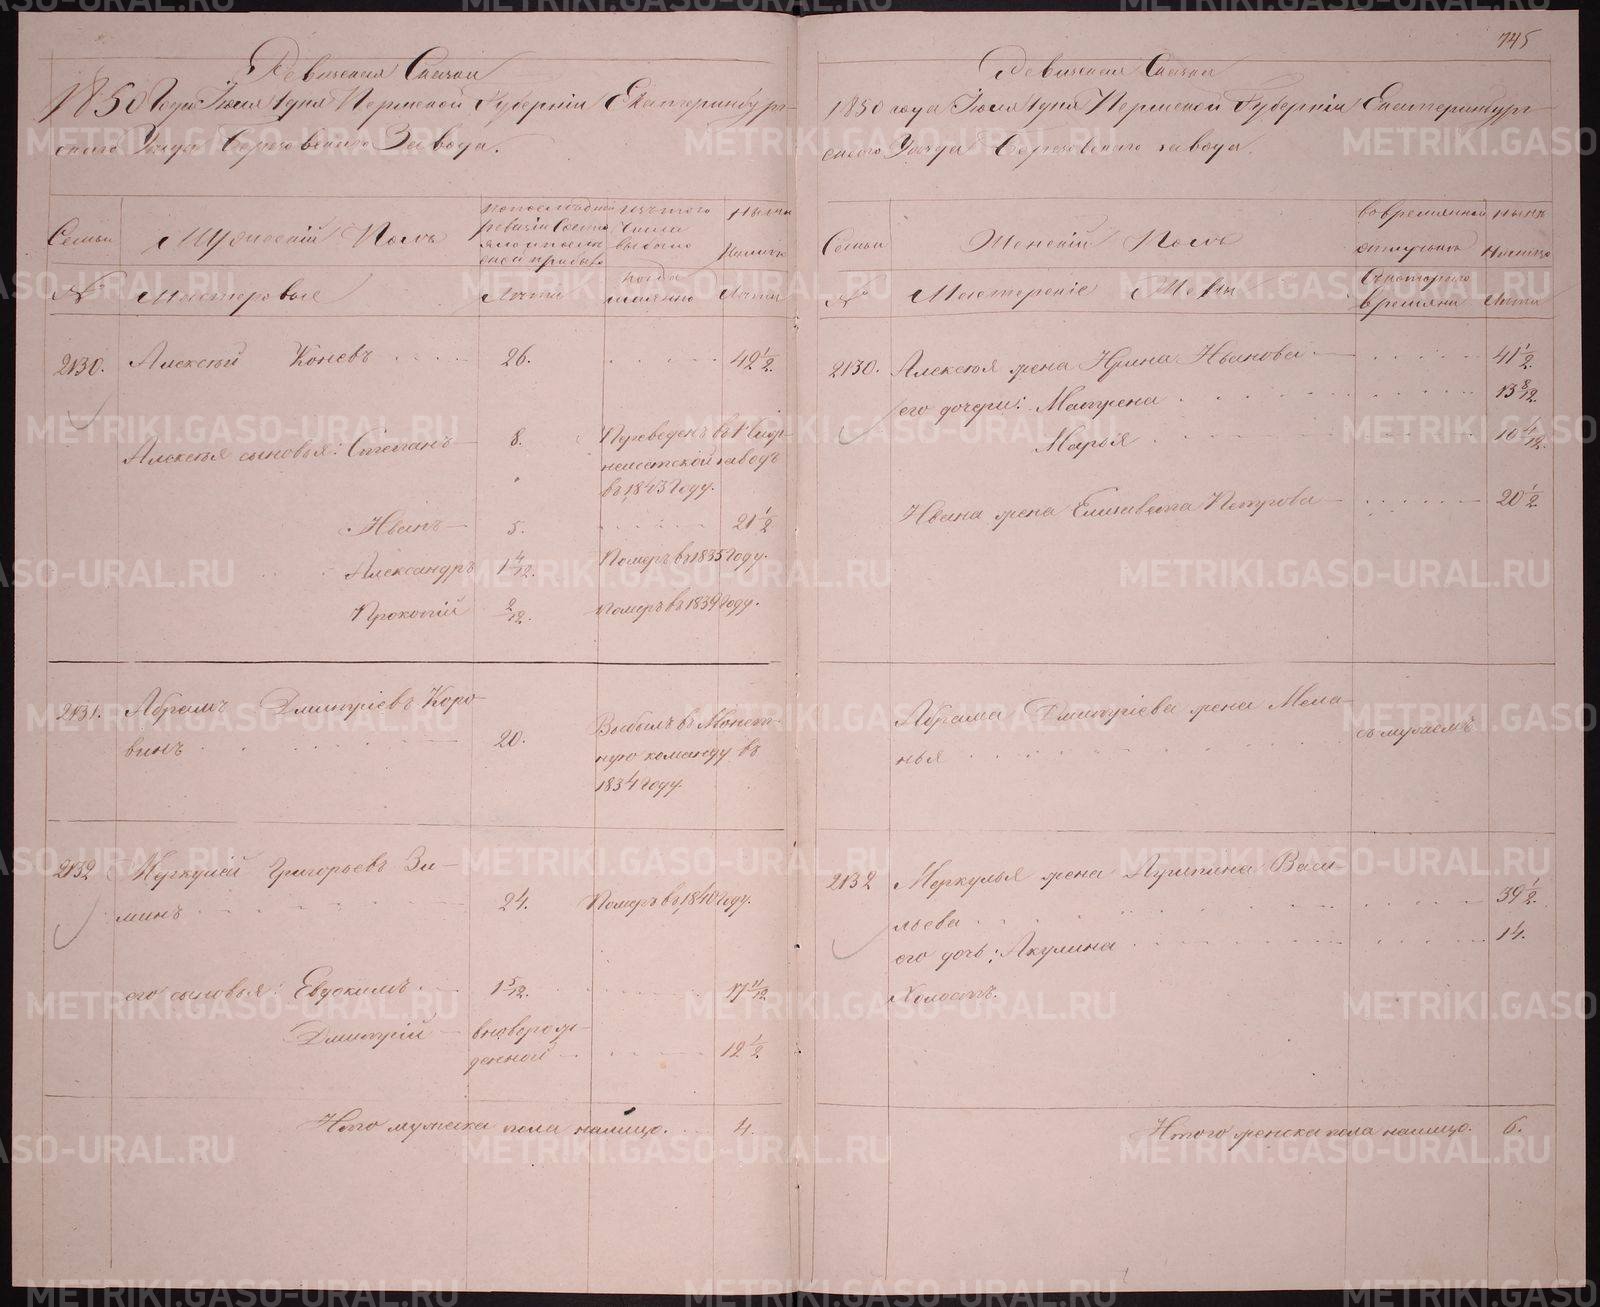 745
Ревизская Сказка
1850 Года Июля 1 дня Пермской Губернiи Екатеринбург-
скаго Уезда Березовскаго Завода.
Семьи
№
Мужескiй Полъ
Мастеровые
по последней
ревизiи состо
яло и после
оной прибыло
Лета
изъ того
числа
выбыло
когда
именно
Ныне
на лицо
Лета
2130.
Алексей Коневъ
26.
42 1/2.
Алексея сыновья: Степанъ
8.
Переведенъ въ
заводъ
въ 1843 Году.
Иванъ
5.
21 1/2
Александръ
1 4/12.
Померъ въ 1835 Году.
Прокопiй
2/12.
Померъ въ 1839 Году.
2131.
Абрамъ Дмитрiевъ Коро-
винъ
20.
Выбылъ въ Монет-
ную команду въ
1834 Году.
2132
Меркурiй Григорьевъ Зи-
минъ
24.
Померъ въ 1840 Году.
его сыновья: Евдокимъ
1 5/12.
17 11/12
Дмитрiй
вновьрож-
денной
12 1/2.
Итого мужеска пола налицо.
4.
Ревизская Сказка
1850 года Июля 1 дня Пермской Губернiи Екатеринбург-
скаго Уезда Березовскаго завода.
Семьи
№
Женскiй Полъ
Мастерскiе Жены
во временной
отлучке
съ котораго
времяни
ныне
на лицо
Лета
2130.
Алексея жена Ирина Иванова
41 1/2.
его дочери: Матрена
13 8/12.
Марья
10 4/12.
Ивана жена Елизавета Петрова
20 1/2.
Абрама Дмитрiева жена Мела-
нья
съ мужемъ
2132
Меркурья жена Васи-
льева
39 1/2.
его дочь: Акулина
14.
Холостъ.
Итого женска пола налицо.
6.
METRIKI.GASO-URAL.RU